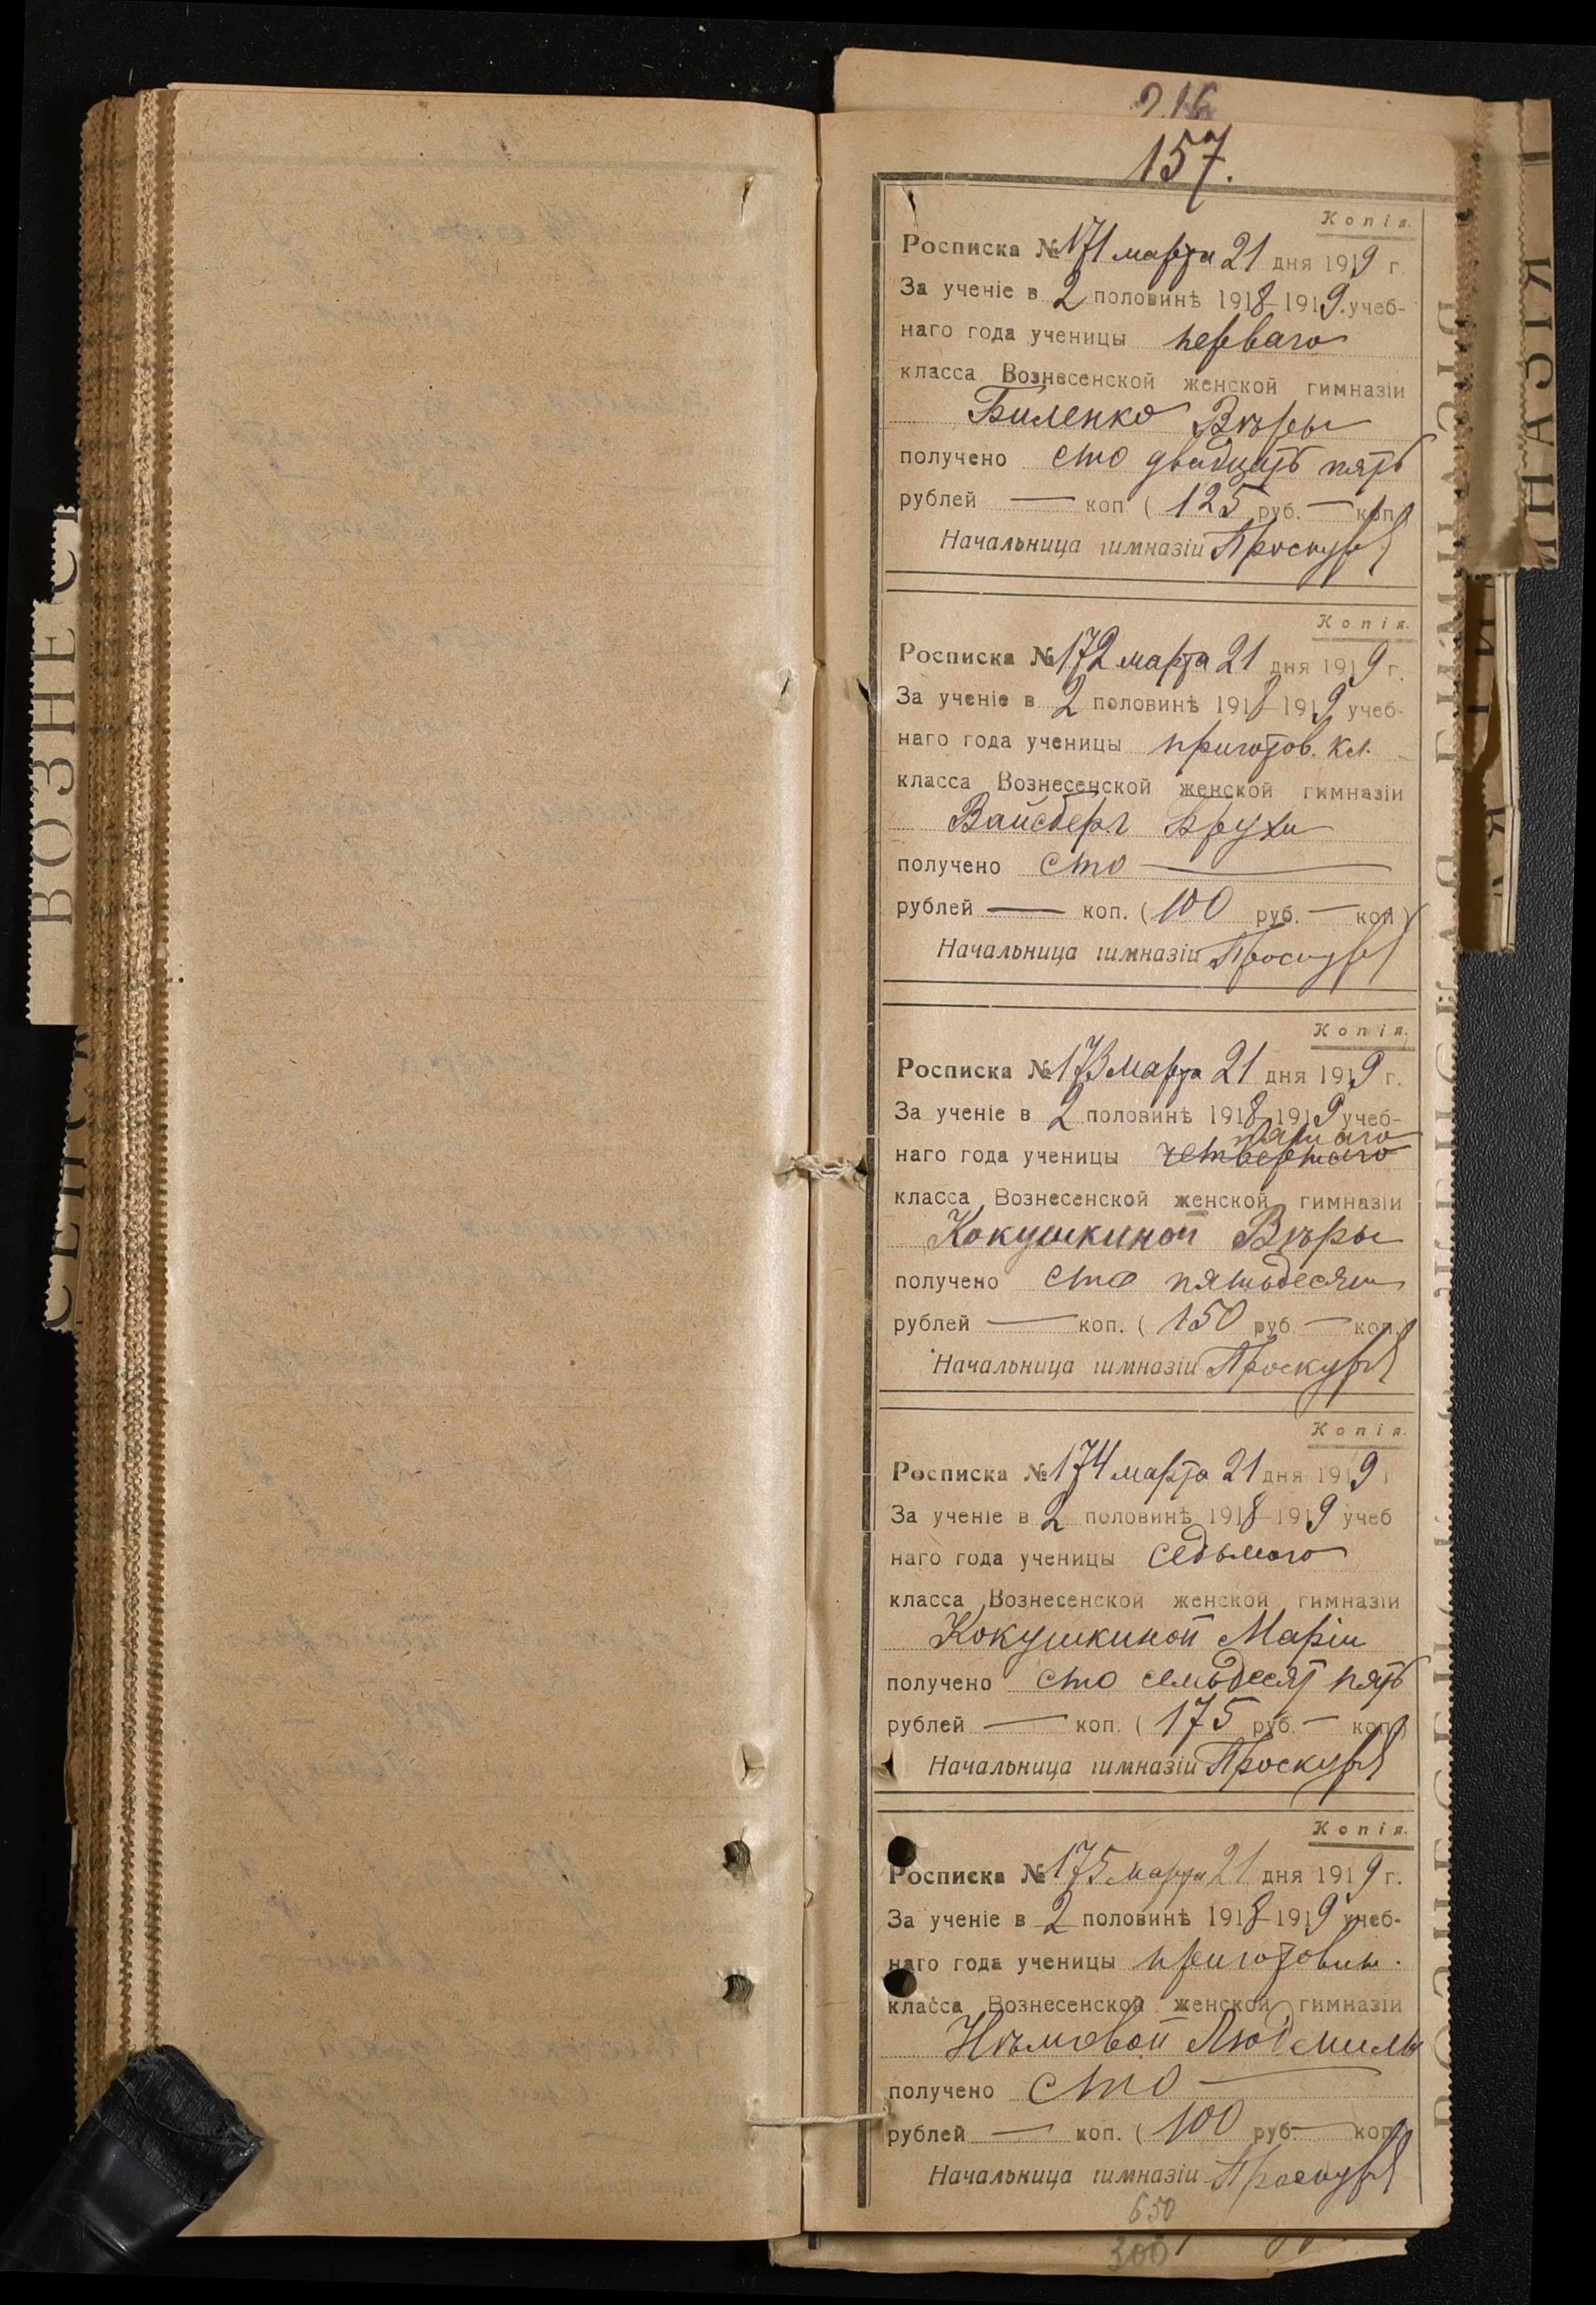 216
157.
Копія.
Росписка № 171 марта 21 дня 1919 г.
За ученіе в 2 половинѣ 1918-1919. учеб-
наго года ученицы перваго
класса Вознесенской женской гимназіи
Биленко Вѣры
получено сто двадцать пять
рублей — коп. (125 руб. — коп.)
Начальница гимназіи
Копія.
Росписка № 172 марта 21 дня 1919 г.
За ученіе в 2 половинѣ 1918-1919 учеб-
наго года ученицы приготов. кл.
класса Вознесенской женской гимназіи
Вайсберг Брухи
получено сто —
рублей — коп. (100 руб. — коп)
Начальница гимназіи
Копія.
Росписка № 173 марта 21 дня 1919 г.
За ученіе в 2 половинѣ 1918-1919 учеб-
пятаго
наго года ученицы четвертаго
класса Вознесенской женской гимназіи
Кокушкиной Вѣры
получено сто пятьдесят
рублей — коп. (150 руб. — коп.
Начальница гимназіи
Копія.
Росписка № 174 марта 21 дня 1919 г
За ученіе в 2 половинѣ 1918-1919 учеб
наго года ученицы седьмого
класса Вознесенской женской гимназіи
Кокушкиной Маріи
получено сто семьдесят пять
рублей — коп. (175 руб. — коп.)
Начальница гимназіи
Копія.
Росписка № 175 марта 21 дня 1919 г.
За ученіе в 2 половинѣ 1918-1919 учеб-
наго года ученицы приготовит.
класса Вознесенской женской гимназіи
Нѣмовой Людмилы
получено сто —
рублей — коп. (100 руб. — коп
Начальница гимназіи
650
300
ВОЗНЕС